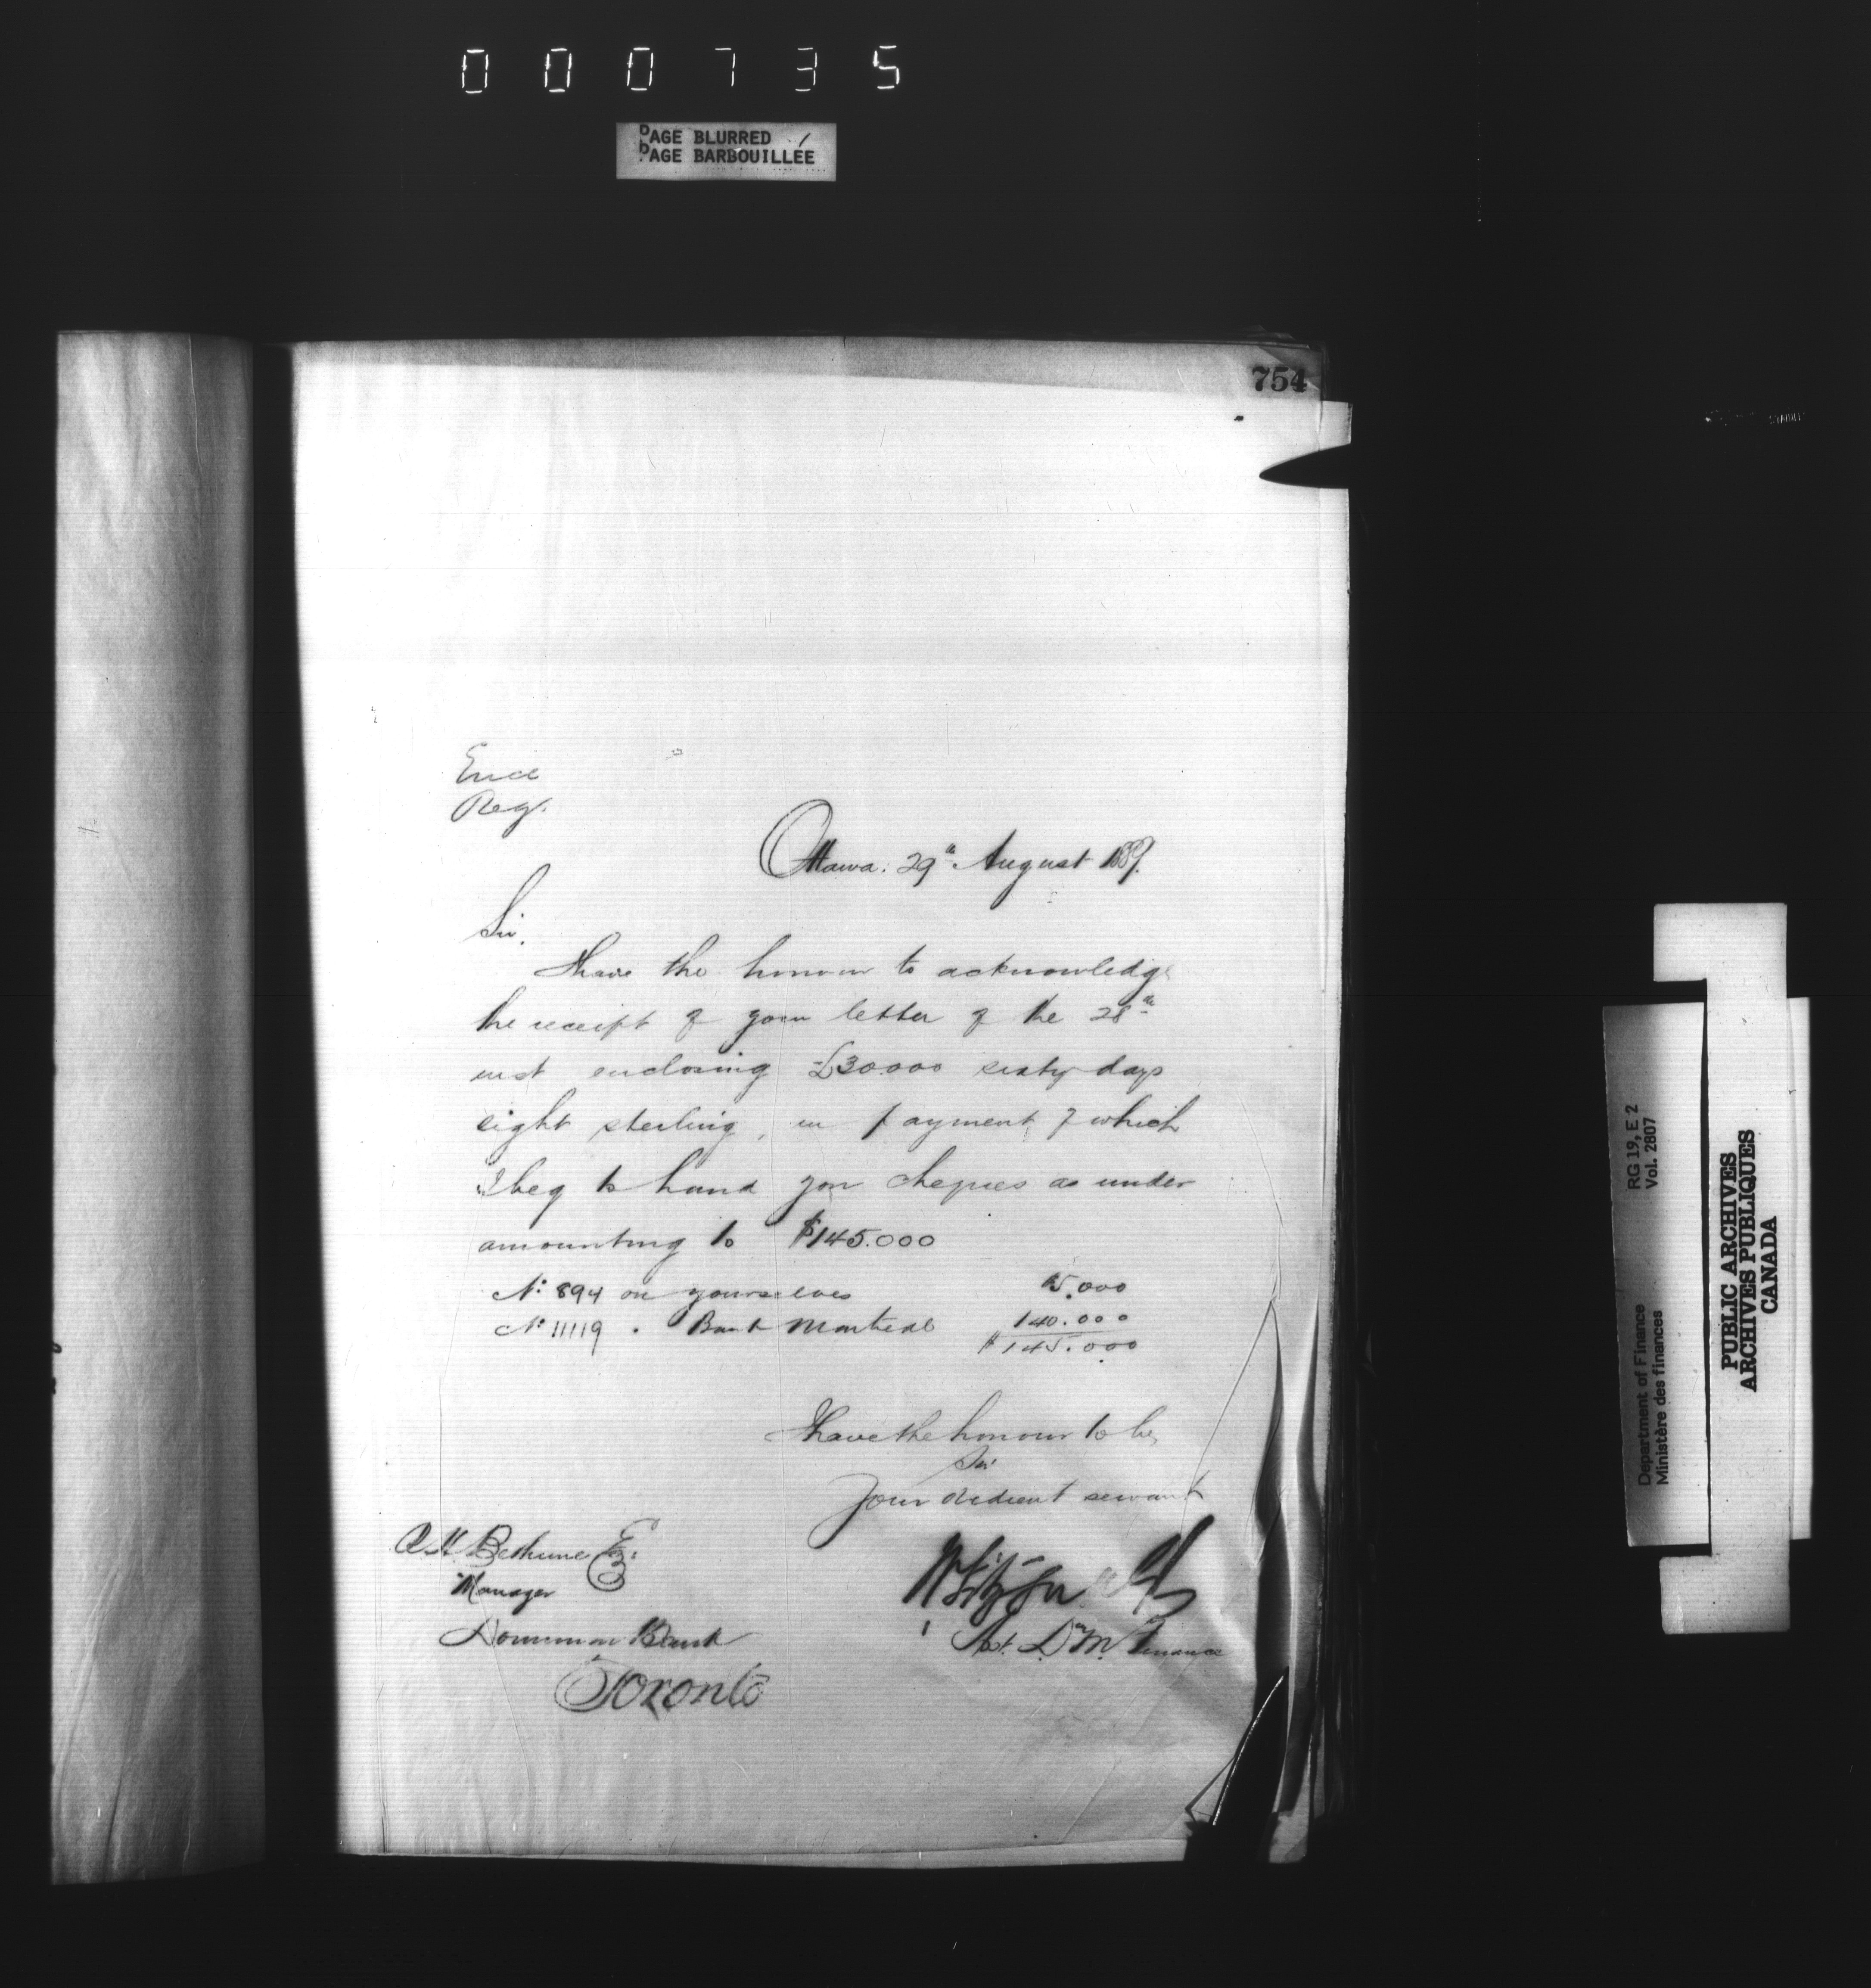 000735
PAGE BLURRED
PAGE BARBOUILLÉE
754
Encl
Reg.
Ottawa. 29th August 1889.
Sir,
I have the honour to acknowledge
the receipt of your letter of the 28th
inst enclosing £30.000 sixty days
sight sterling, in payment of which
I beg to hand you cheques as under
amounting to $145.000
No. 894 on yourselves 5.000
No. 11119 . Bank Montreal 140.000
$145.000
I have the honour to be,
Sir
Your obedient servant
R. H. Bethune Esq.
Manager
Dominion Bank
Toronto
Act. D. M. Finance
RG 19, E 2
Vol. 2807
Department of Finance
Ministère des finances
PUBLIC ARCHIVES
ARCHIVES PUBLIQUES
CANADA